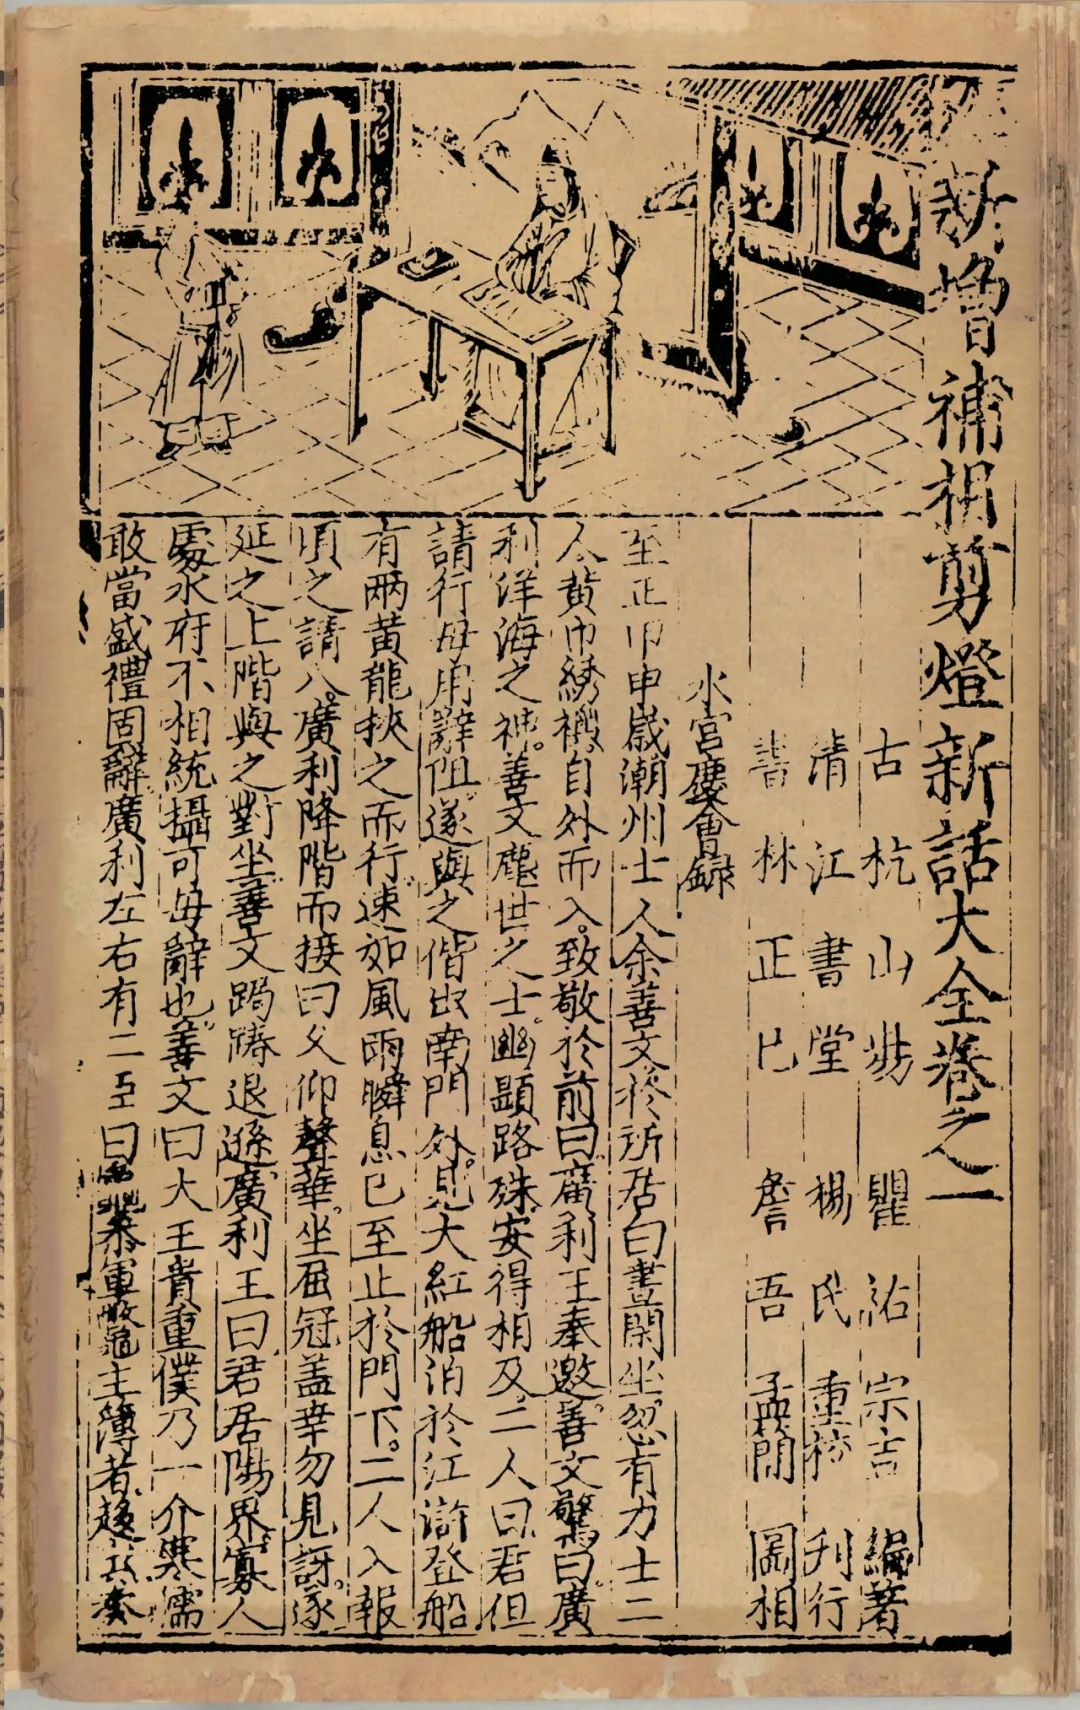 新增補相剪燈新話大全卷之一
古杭山陽瞿祐宗吉編著
清江書堂楊氏重校刊行
書林正巳詹吾孟簡圖相
水宮慶會録
至正甲申歲潮州士人余善文於所居白晝閑坐忽有力士二
人黃巾綉襖自外而入致敬於前曰廣利王奉邀善文驚曰廣
利洋海之神善文塵世之士幽顯路殊安得相及二人曰君但
請行毋用辭阻遂與之偕出南門外見大紅船泊於江滸登船
有兩黃龍挾之而行速如風雨瞬息已至止於門下二人入報
頃之請入廣利降階而接曰久仰聲華坐屈冠盖幸勿見訝遂
延之上階與之對坐善文跼蹐退遜廣利王曰君居陽界寡人
處水府不相統攝可毋辭也善文曰大王貴重僕乃一介寒儒
敢當盛禮固辭廣利左右有二臣曰黿叅軍鱉主簿者趍出奏